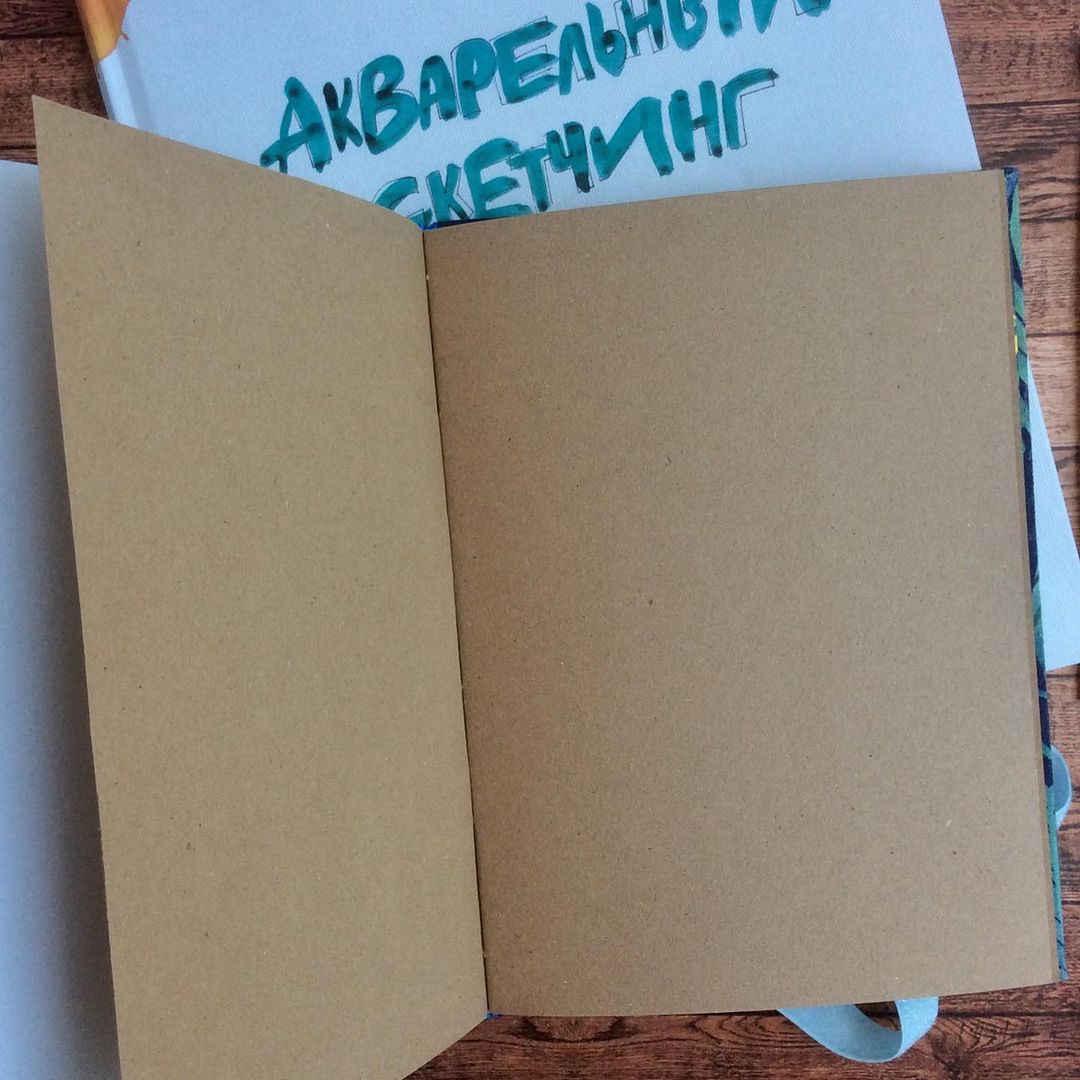 АКВАРЕЛЬНЫЙ
СКЕТЧИНГ